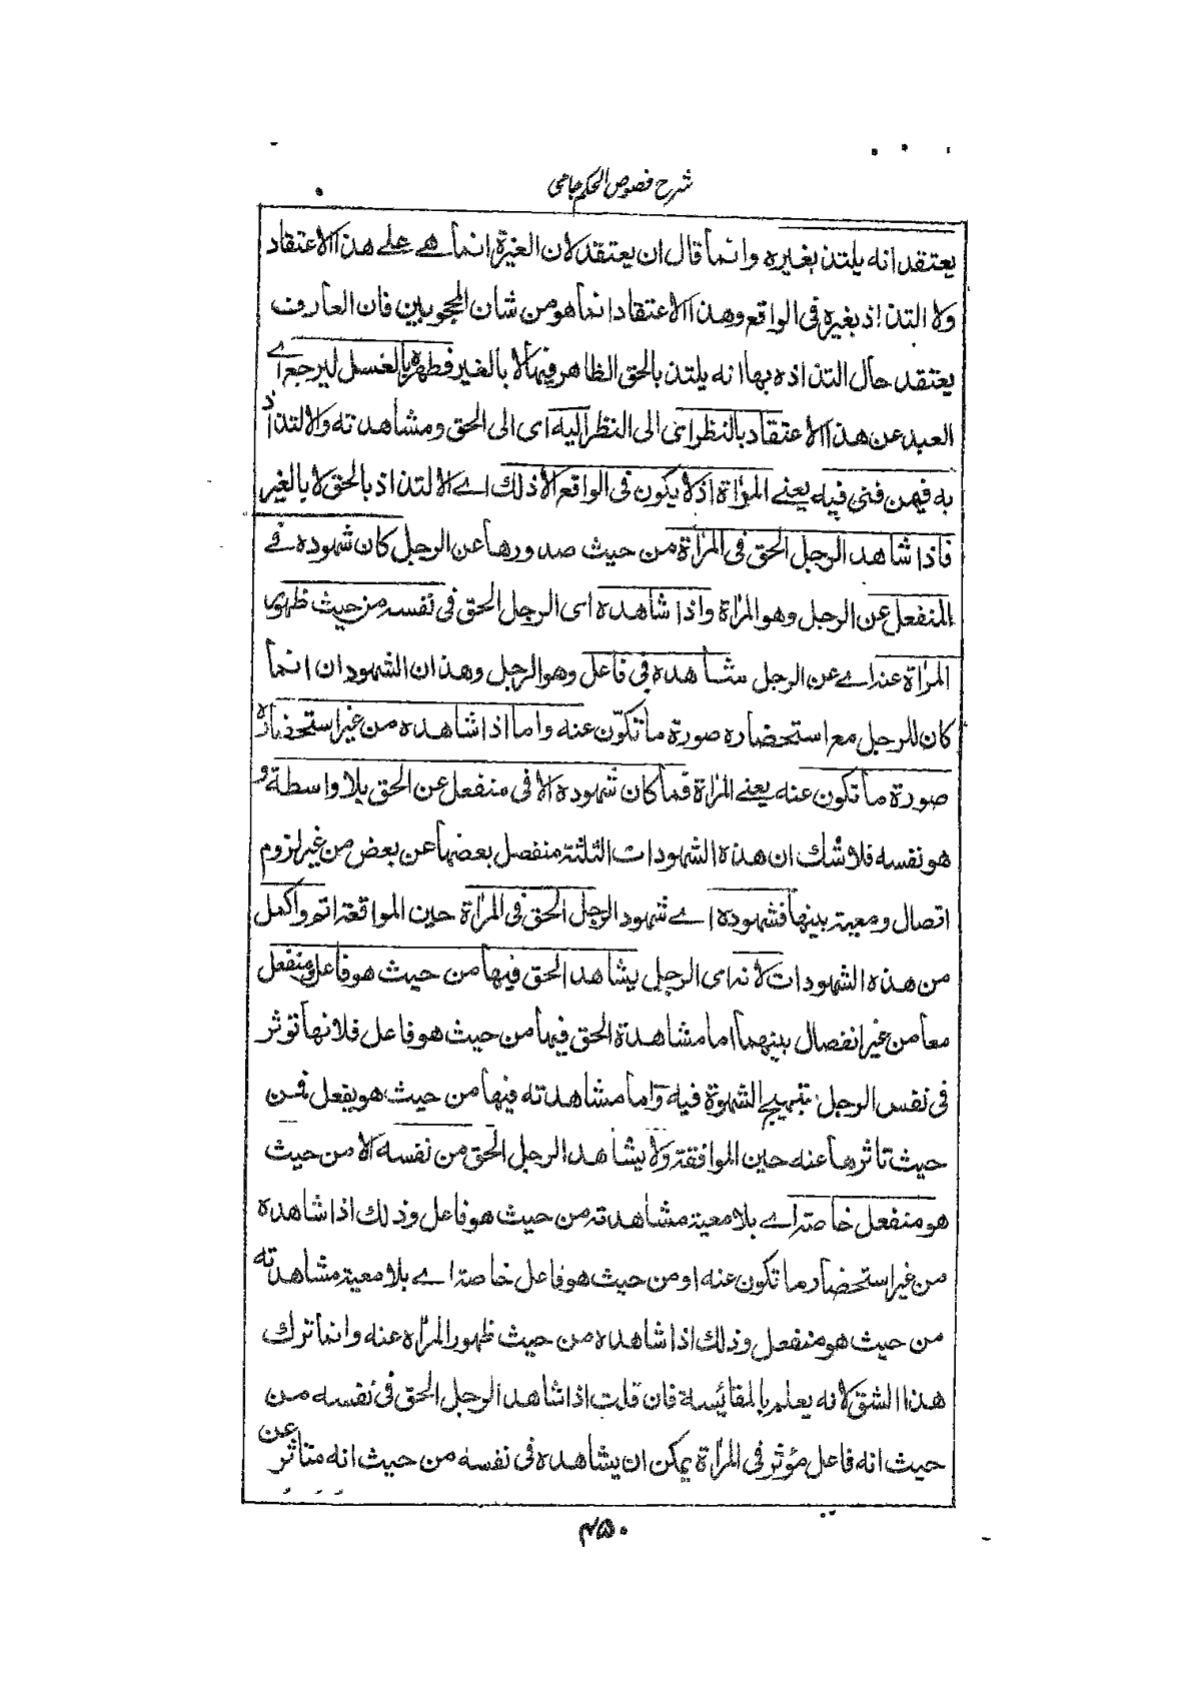 شرح فصوص الحکم جامی
يعتقد انه يلتذ بغيره وانما قال ان يعتقد لان الغيرة انما هے علے هذا الاعتقاد
ولا التذاذ بغيره فى الواقع وهذا الاعتقاد انما هو من شان المحجوبين فان العارف
يعتقد حال التذاذه بها انه يلتذ بالحق الظاهر فيها لا بالغير فطهره بالغسل ليرجع اے
العبد عن هذا الاعتقاد بالنظر اى الى النظر اليه اى الى الحق ومشاهدته والالتذاذ
به فيمن فنى فيه يعنے المرأة اذ لا يكون فى الواقع الا ذلك اے الا التذاذ بالحق لا بالغير
فاذا شاهد الرجل الحق فى المرأة من حيث صدورها عن الرجل كان شهوده فے
المنفعل عن الرجل وهو المرأة واذا شاهده اى الرجل الحق فى نفسه من حيث ظهور
المرأة عنه اے عن الرجل شاهده فى فاعل وهو الرجل وهذان الشهودان انما
كان للرجل مع استحضاره صورة ما تكوّن عنه واما اذا شاهده من غير استحضاره
صورة ما تكون عنه يعنے المرأة فما كان شهوده الا فى منفعل عن الحق بلا واسطة و
هو نفسه فلا شك ان هذه الشهودات الثلثة منفصل بعضها عن بعض من غير لزوم
اتصال ومعية بينها فشهوده اے شهود الرجل الحق فى المرأة حين المواقعة اتم واكمل
من هذه الشهودات لانه اى الرجل يشاهد الحق فيها من حيث هو فاعل ومنفعل
معا من غير انفصال بينهما اما مشاهدة الحق فيها من حيث هو فاعل فلانها تؤثر
فى نفس الرجل بتهييج الشهوة فيه واما مشاهدته فيها من حيث هو يفعل فمن
حيث تاثرها عنه حين الموافقة ولا يشاهد الرجل الحق من نفسه الا من حيث
هو منفعل خاصة اے بلا معية مشاهدته من حيث هو فاعل وذلك اذا شاهده
من غير استحضار ما تكون عنه او من حيث هو فاعل خاصة اے بلا معية مشاهدته
من حيث هو منفعل وذلك اذا شاهده من حيث ظهور المرأة عنه وانما ترك
هذا الشق لانه يعلم بالمقائسة فان قلت اذا شاهد الرجل الحق فى نفسه من
حيث انه فاعل مؤثر فى المرأة يمكن ان يشاهده فى نفسه من حيث انه متاثر عن
۴۵۰